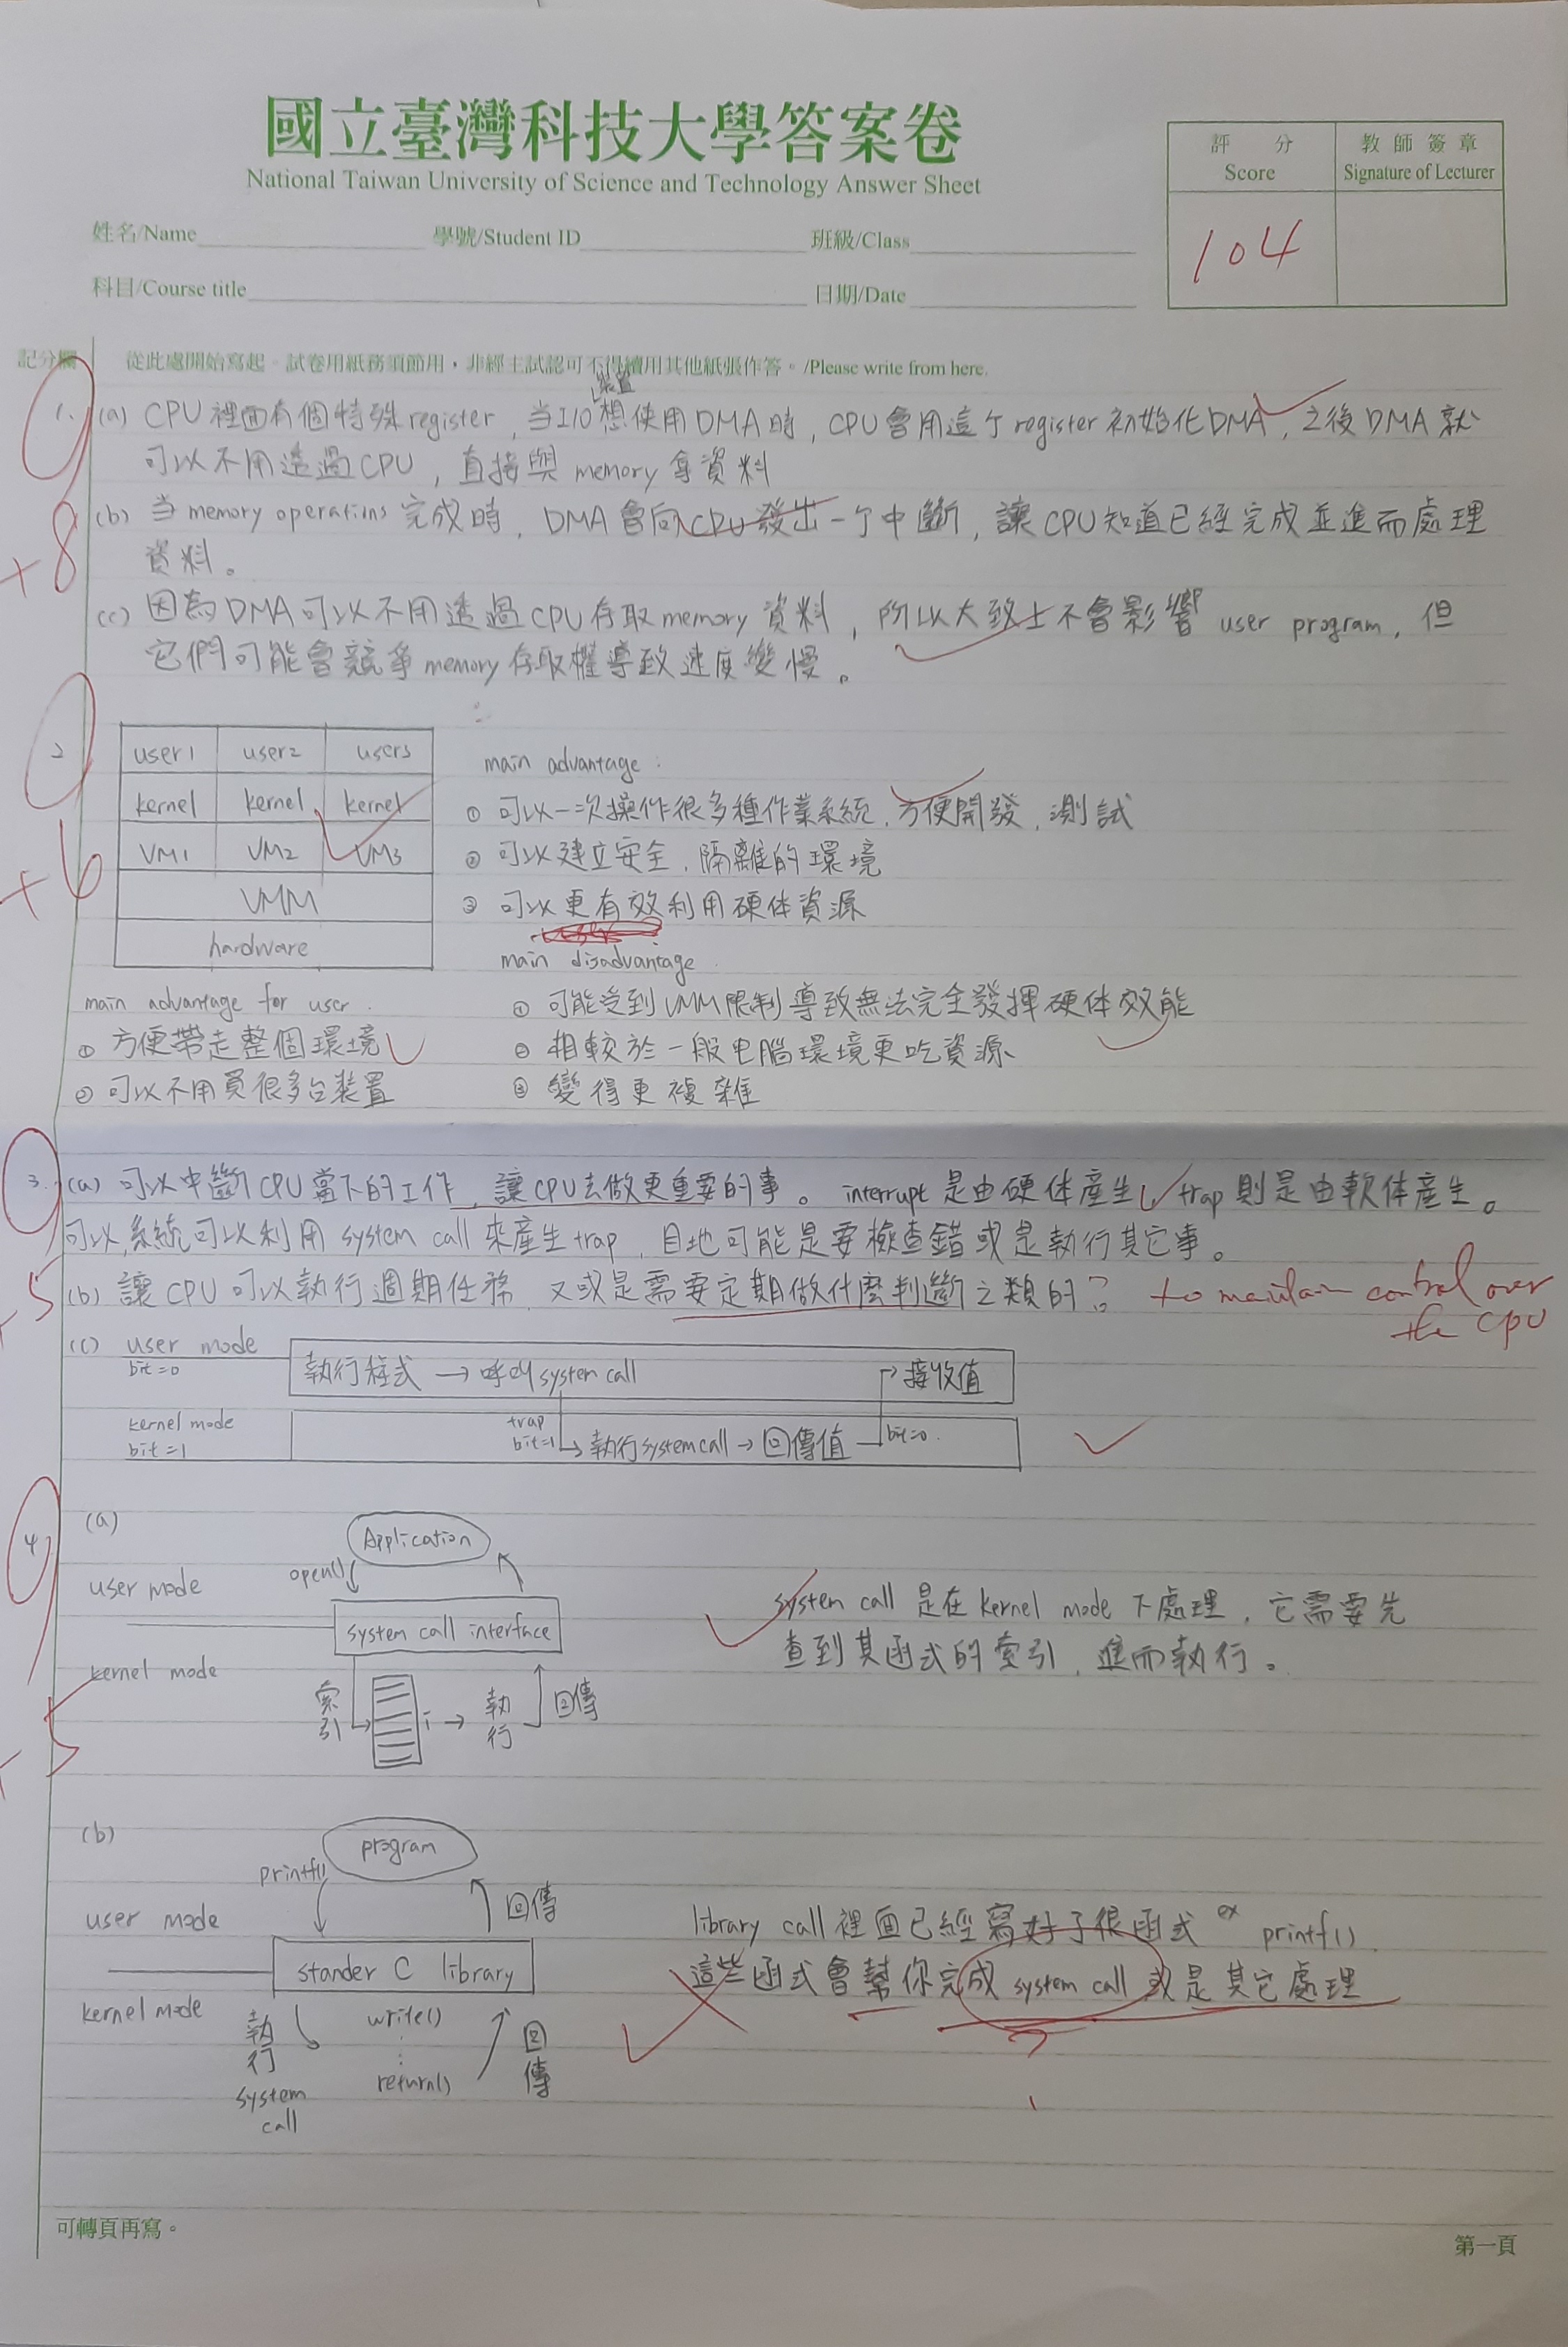 國立臺灣科技大學答案卷
National Taiwan University of Science and Technology Answer Sheet
評 分
Score
教師簽章
Signature of Lecturer
104
姓名/Name
學號/Student ID
班級/Class
科目/Course title
日期/Date
記分欄
從此處開始寫起。試卷用紙務須節用,非經主試認可不得續用其他紙張作答。/Please write from here.
裝置
1. (a) CPU 裡面有個特殊 register, 当 I/O 想使用 DMA 時, CPU 會用這个 register 初始化 DMA, 之後 DMA 就
可以不用透過 CPU, 直接與 memory 拿資料
+8
(b) 当 memory operations 完成時, DMA 會向 CPU 發出一个中斷, 讓 CPU 知道已經完成並進而處理
資料。
(c) 因為 DMA 可以不用透過 CPU 存取 memory 資料, 所以大致上不會影響 user program, 但
它們可能會競爭 memory 存取權導致速度變慢。
2
+6
user1 user2 user3
kernel kernel kernel
VM1 VM2 VM3
VMM
hardware
main advantage:
① 可以一次操作很多種作業系統, 方便開發, 測試
② 可以建立安全, 隔離的環境
③ 可以更有效利用硬体資源
main disadvantage
① 可能受到 VMM 限制導致無法完全發揮硬体效能
② 相較於一般电腦環境更吃資源
③ 變得更複雜
main advantage for user.
① 方便帶走整個環境
② 可以不用買很多台裝置
3. (a) 可以中斷 CPU 當下的工作, 讓 CPU 去做更重要的事。interrupt 是由硬体產生, trap 則是由軟体產生。
可以, 系統可以利用 system call 來產生 trap, 目地可能是要檢查錯或是執行其它事。
+5
(b) 讓 CPU 可以執行週期任務, 又或是需要定期做什麼判斷之類的?
to maintain control over
the CPU
(c) user mode
bit=0
執行程式 → 呼叫 system call
接收值
kernel mode
bit=1
trap
bit=1
執行 system call → 回傳值
bit=0.
4
+5
(a)
Application
open()
user mode
system call interface
kernel mode
索引
i
執行
回傳
system call 是在 kernel mode 下處理, 它需要先
查到其函式的索引, 進而執行。
(b)
program
printf()
回傳
user mode
stander C library
kernel mode
執行
system
call
write()
return()
回傳
library call 裡面已經寫好了很函式 ex printf().
這些函式會幫你完成 system call 或是其它處理
?
可轉頁再寫。
第一頁